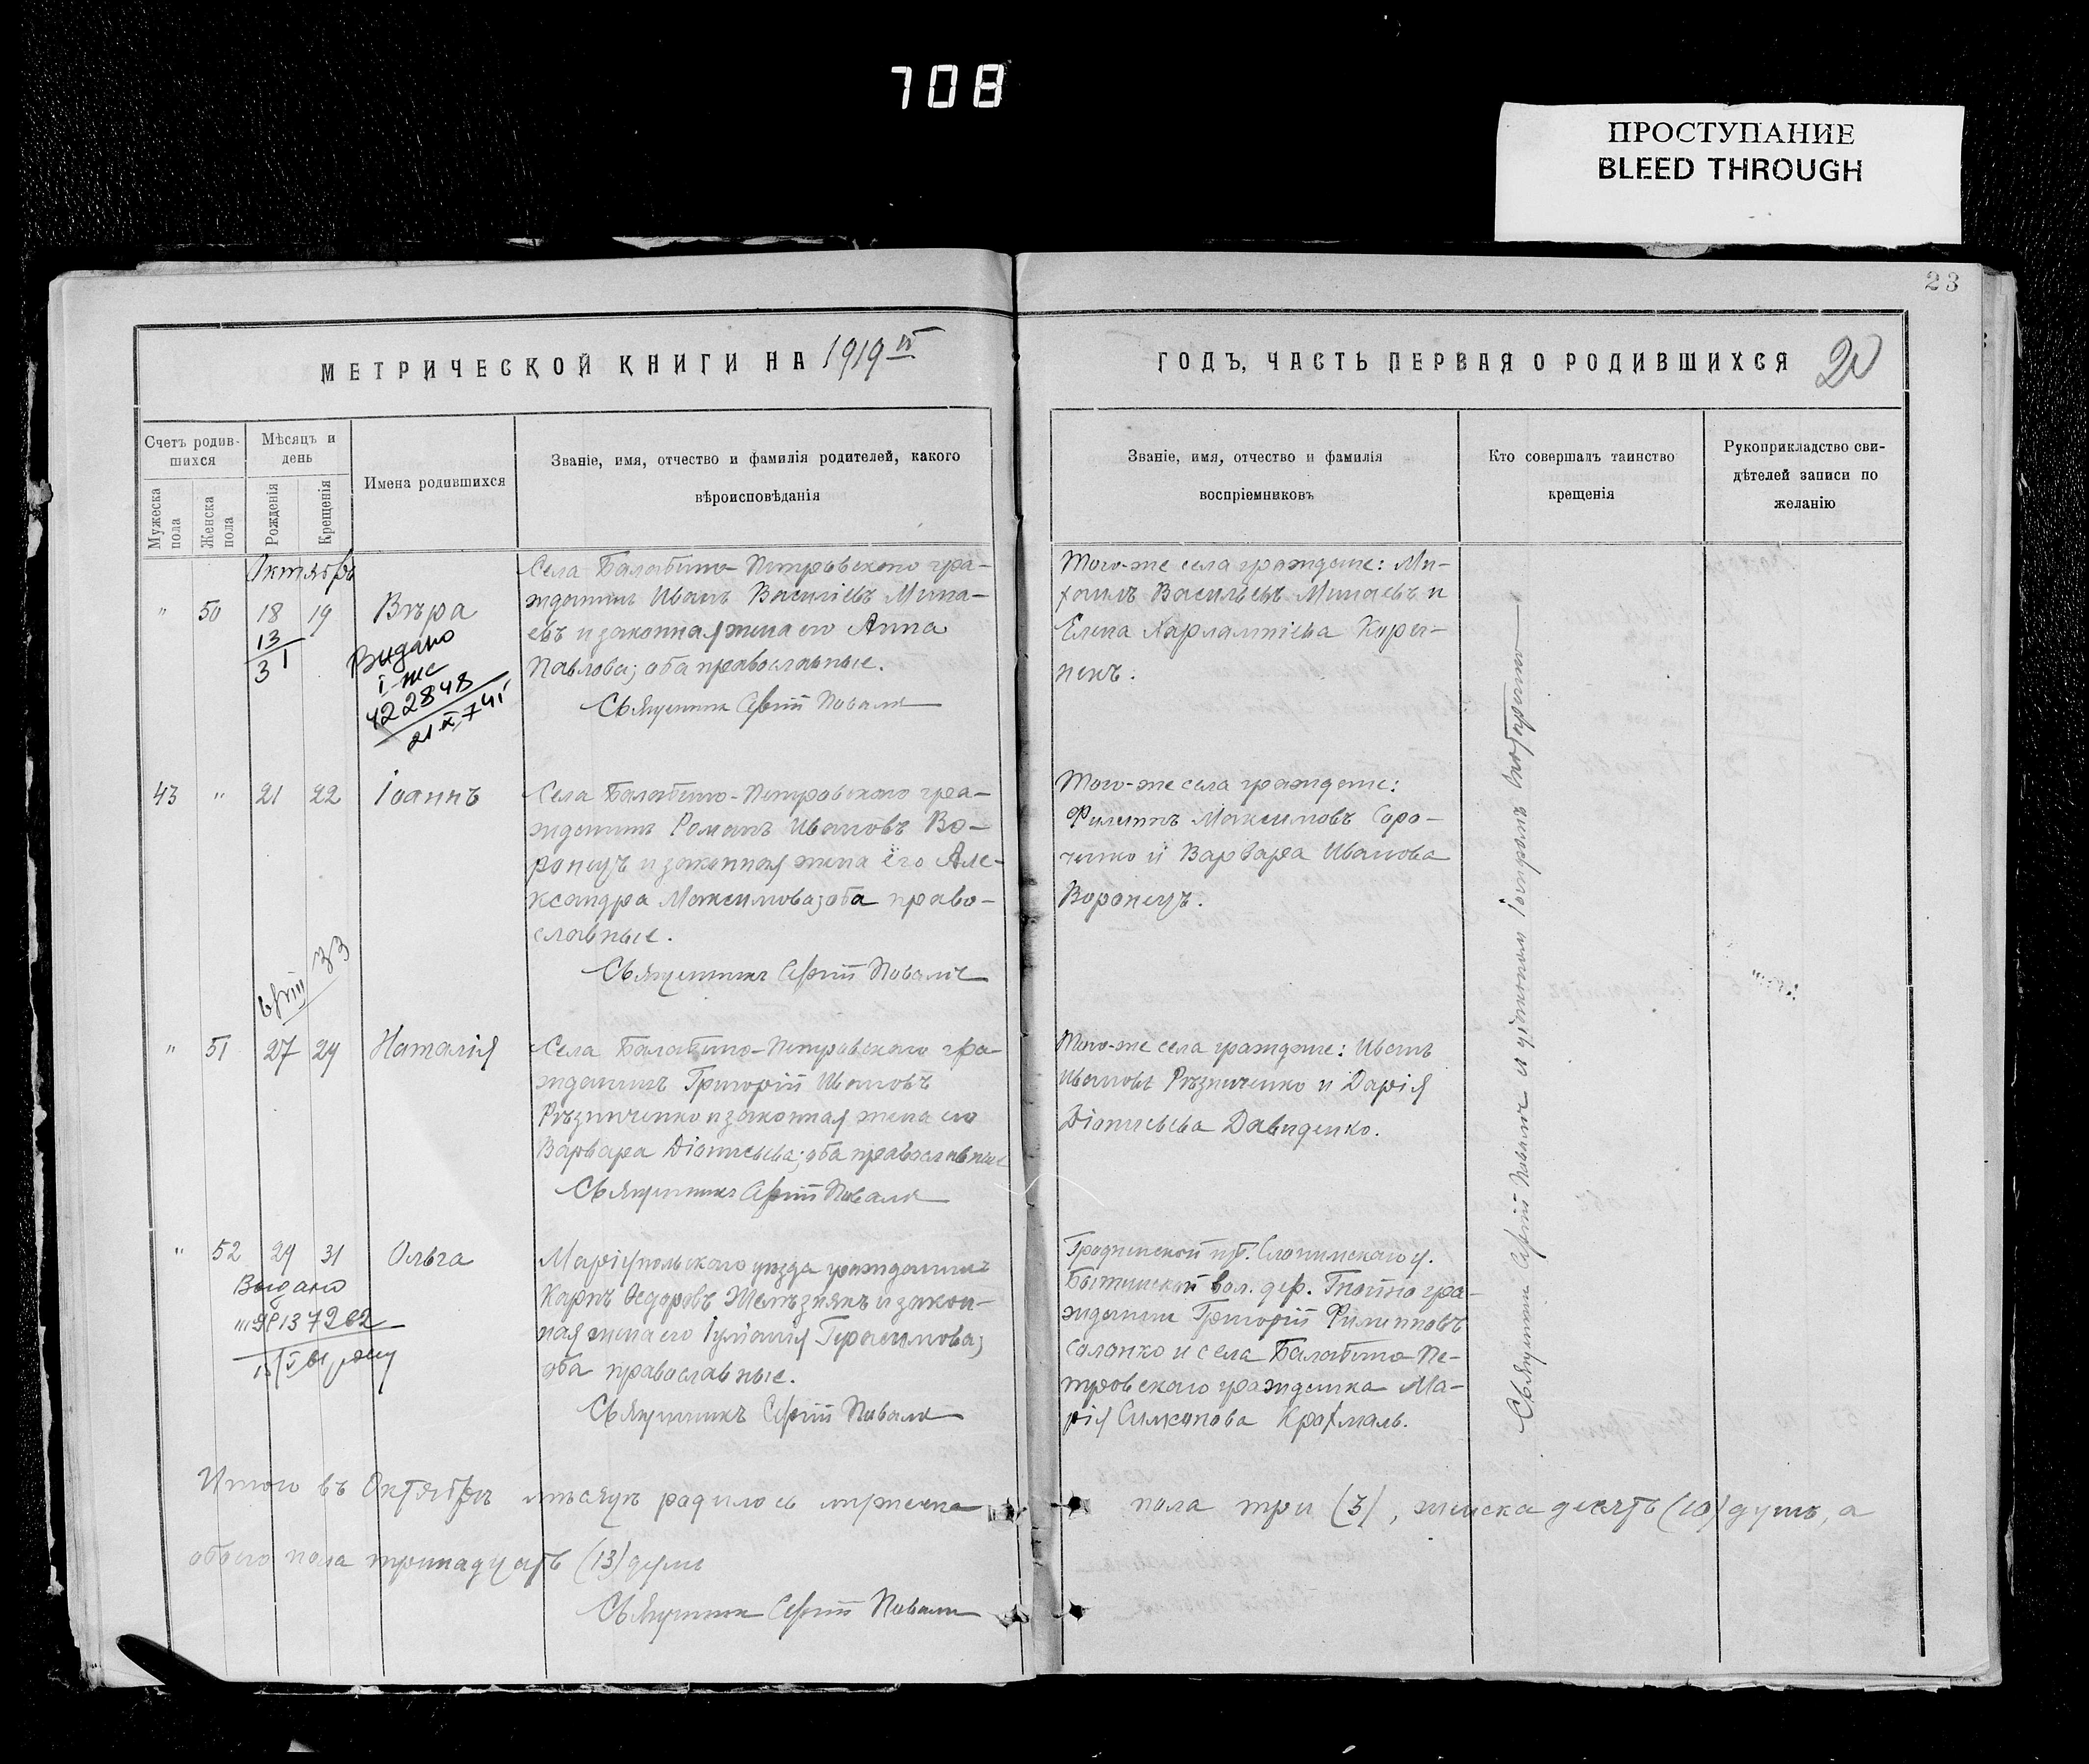 708
ПРОСТУПАНИЕ
BLEED THROUGH
23
МЕТРИЧЕСКОЙ КНИГИ НА 1919 й
ГОДЪ, ЧАСТЬ ПЕРВАЯ О РОДИВШИХСЯ
20
Счетъ родив-
шихся
Мѣсяцъ и
день
Мужеска пола
Женска пола
Рожденія
Крещенія
Имена родившихся
Званіе, имя, отчество и фамилія родителей, какого
вѣроисповѣданія
Званіе, имя, отчество и фамилія
воспріемниковъ
Кто совершалъ таинство
крещенія
Рукоприкладство сви-
дѣтелей записи по
желанію
Октябрь
" 50 18 19 Вѣра
13
31
Видано
422848
Села Балабино-Петровского гра-
жданинъ Иванъ Васильевъ Мина-
евъ и законная жена его Анна
Павлова; оба православные.
Священникъ Сергій Повало
Того-же села граждане: Ми-
хаилъ Васильевъ Минаевъ и
Елена Харлампіева Корс-
43 " 21 22 Іоаннъ
Села Балабино-Петровского гра-
жданинъ Романъ Ивановъ Во-
ронецъ и законная жена его Але-
ксандра Максимова; оба право-
славные.
Священникъ Сергій Повало
Того-же села граждане:
Филиппъ Максимовъ Соро-
ченко и Варвара Иванова
Воронецъ.
33
" 51 27 29 Наталія
Села Балабино-Петровского гра-
жданинъ Григорій Ивановъ
Рѣзниченко и законная жена его
Варвара Діонисьева; оба православные
Священникъ Сергій Повало
Того-же села граждане: Иванъ
Ивановъ Рѣзниченко и Дарія
Діонисьева Давиденко.
" 52 29 31 Ольга
Выдано
137262
Маріупольскаго уѣзда гражданинъ
Карпъ Ѳедоровъ Желѣзнякъ и закон-
ная жена его Іуліанія Герасимова;
оба православные.
Священникъ Сергій Повало
Гродненской губ. Слонимскаго у.
Бытенской вол. дер. Гнойно гра-
жданинъ Григорій Филипповъ
Саланко и села Балабино-Пе-
тровского гражданка Ма-
рія Симеонова Крахмаль.
Священникъ Сергій Повало и діаконом
Итого въ Октябрѣ мѣсяцѣ родилось мужеска
пола три (3), женска десять (10) душъ, а
обоего пола тринадцать (13) душъ
Священникъ Сергій Повало